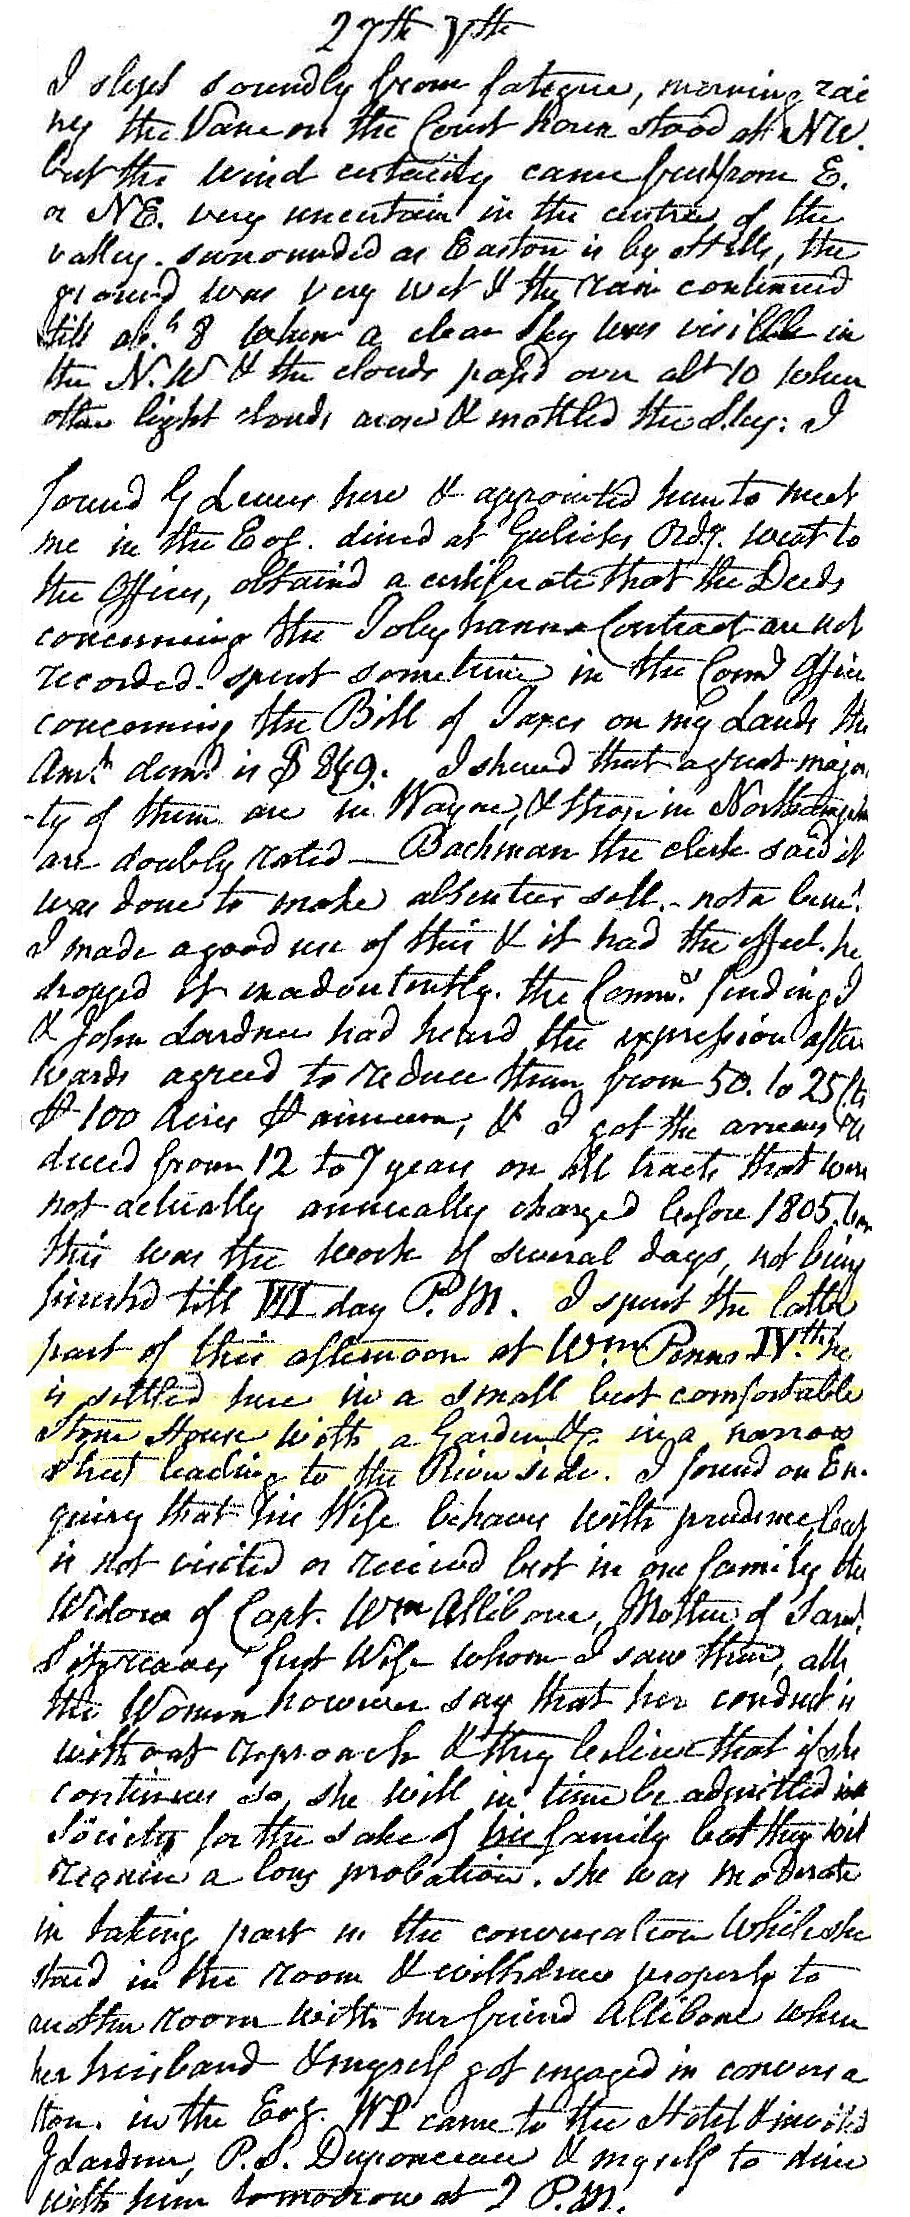 27th 7th
I slept soundly from fatigue, morning rai
ny the Vane on the Court house stood at NW.
but the wind certainly came from E.
or NE. very uncertain in the centre of the
valley. surrounded as Easton is by Hills, the
ground was very wet & the rain continued
till ab.t 8 when a clear Sky was visible in
the N.W & the clouds pass'd over abt 10 when
other light clouds arose & mottled the Sky: I
found G Levers here & appointed him to meet
me in the Eog. dined at Gulicks Ordy. went to
the Offices, obtaind a certificate that the Deeds
concerning the Tobyhanna Contract are not
recorded. spent sometime in the Comrs Office
concerning the Bill of Taxes on my Lands the
Amt. demd. is $ 849. I shewed that a great major
-ty of them are in Wayne, & those in Northampton
are doubly rated — Bachman the clerk said it
was done to make absentees sell. - nota bene.
I made a good use of this & it had the effect. he
dropped it inadvertently. the Commrs. finding I
& John Lardner had heard the expression after
wards agreed to reduce them from 50. to 25 Cts
⅌ 100 Acres ⅌ annum, & I got the arrears re
duced from 12 to 7 years on all tracts that were
not actually annually charged before 1805.
this was the work of several days, not being
finishd till VII day P.M. I spent the latter
part of this afternoon at Wm Penns IV.th he
is settled here in a small but comfortable
Stone House with a Garden &c. in a narrow
street leading to the River side. I found on En-
quiry that his Wife behaves with prudence, but
is not visited or received but in one family the
Widow of Capt. Wm Allibone, Mother of Saml.
Sitgreaves first Wife whom I saw there, all
the Women however say that her conduct is
without reproach & they believe that if she
continues so, she will in time be admitted into
Society for the sake of his family but they will
require a long probation. she was moderate
in taking part in the conversation while she
staid in the room & withdrew properly to
another room with her friend Allibone when
her husband & myself got engaged in conversa
tion. in the Eog. WP came to the Hotel & invited
J Lardner, P.S. Duponceau & myself to dine
with him tomorrow at 2 P.M.